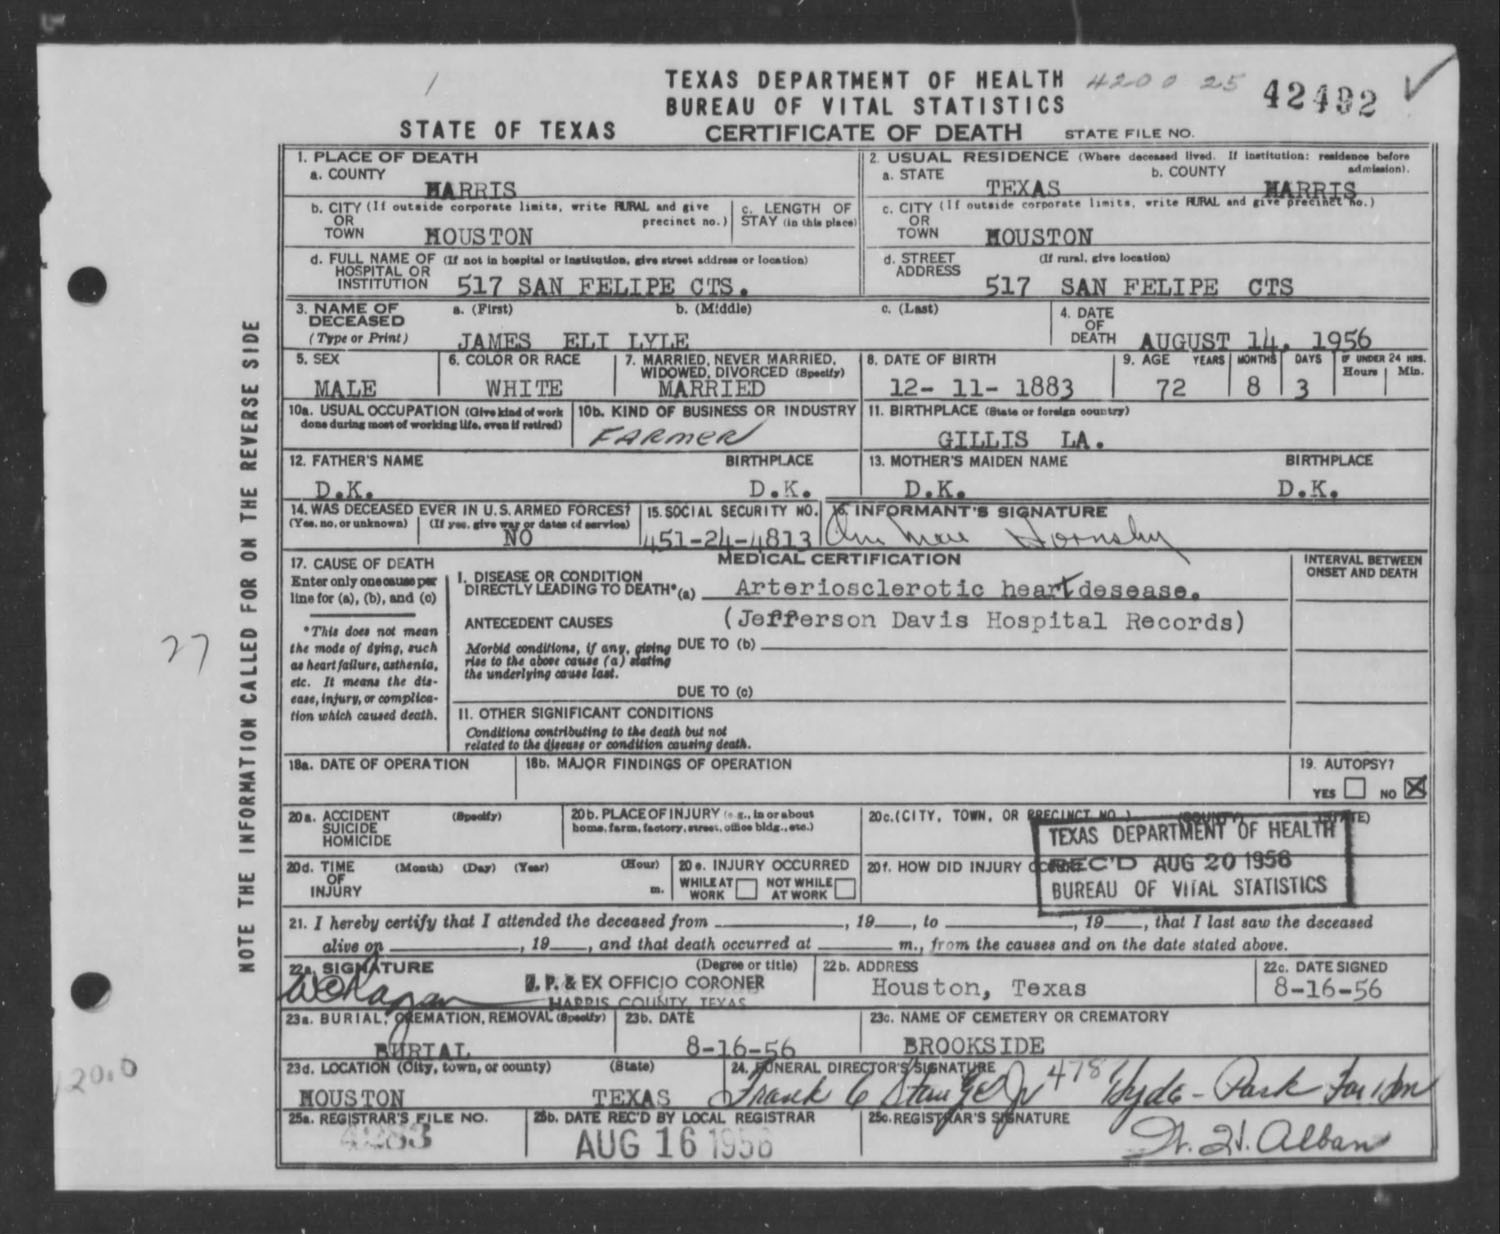 TEXAS DEPARTMENT OF HEALTH 4200 25 42492
BUREAU OF VITAL STATISTICS
STATE OF TEXAS CERTIFICATE OF DEATH STATE FILE NO.
1. PLACE OF DEATH
a. COUNTY
HARRIS
2. USUAL RESIDENCE (Where deceased lived. If institution: residence before admission).
a. STATE b. COUNTY
TEXAS HARRIS
b. CITY (If outside corporate limits, write RURAL and give precinct no.)
OR
TOWN HOUSTON
c. LENGTH OF
STAY (in this place)
c. CITY (If outside corporate limits, write RURAL and give precinct no.)
OR
TOWN HOUSTON
d. FULL NAME OF (If not in hospital or institution, give street address or location)
HOSPITAL OR
INSTITUTION 517 SAN FELIPE CTS.
d. STREET (If rural, give location)
ADDRESS
517 SAN FELIPE CTS
3. NAME OF a. (First) b. (Middle) c. (Last)
DECEASED
(Type or Print) JAMES ELI LYLE
4. DATE
OF
DEATH AUGUST 14, 1956
5. SEX
MALE
6. COLOR OR RACE
WHITE
7. MARRIED, NEVER MARRIED,
WIDOWED, DIVORCED (Specify)
MARRIED
8. DATE OF BIRTH
12- 11- 1883
9. AGE YEARS MONTHS DAYS IF UNDER 24 HRS.
Hours Min.
72 8 3
10a. USUAL OCCUPATION (Give kind of work
done during most of working life, even if retired)
10b. KIND OF BUSINESS OR INDUSTRY
FARMER
11. BIRTHPLACE (State or foreign country)
GILLIS LA.
12. FATHER'S NAME BIRTHPLACE
D.K. D.K.
13. MOTHER'S MAIDEN NAME BIRTHPLACE
D.K. D.K.
14. WAS DECEASED EVER IN U.S. ARMED FORCES?
(Yes, no, or unknown) (If yes, give war or dates of service)
NO
15. SOCIAL SECURITY NO.
451-24-4813
16. INFORMANT'S SIGNATURE
Hornsby
17. CAUSE OF DEATH
Enter only one cause per
line for (a), (b), and (c)
*This does not mean
the mode of dying, such
as heart failure, asthenia,
etc. It means the dis-
ease, injury, or complica-
tion which caused death.
MEDICAL CERTIFICATION
INTERVAL BETWEEN
ONSET AND DEATH
I. DISEASE OR CONDITION
DIRECTLY LEADING TO DEATH*(a) Arteriosclerotic heart desease.
ANTECEDENT CAUSES (Jefferson Davis Hospital Records)
Morbid conditions, if any, giving DUE TO (b)
rise to the above cause (a) stating
the underlying cause last.
DUE TO (c)
II. OTHER SIGNIFICANT CONDITIONS
Conditions contributing to the death but not
related to the disease or condition causing death.
18a. DATE OF OPERATION
18b. MAJOR FINDINGS OF OPERATION
19. AUTOPSY?
YES NO X
20a. ACCIDENT (Specify)
SUICIDE
HOMICIDE
20b. PLACE OF INJURY (e.g., in or about
home, farm, factory, street, office bldg., etc.)
20c. (CITY, TOWN, OR PRECINCT NO.) (COUNTY) (STATE)
20d. TIME (Month) (Day) (Year) (Hour)
OF
INJURY m.
20e. INJURY OCCURRED
WHILE AT WORK NOT WHILE AT WORK
20f. HOW DID INJURY
TEXAS DEPARTMENT OF HEALTH
REC'D AUG 20 1956
BUREAU OF VITAL STATISTICS
21. I hereby certify that I attended the deceased from , 19 , to , 19 , that I last saw the deceased
alive on , 19 , and that death occurred at m., from the causes and on the date stated above.
22a. SIGNATURE (Degree or title)
J. P. & EX OFFICIO CORONER
HARRIS COUNTY, TEXAS
22b. ADDRESS
Houston, Texas
22c. DATE SIGNED
8-16-56
23a. BURIAL, CREMATION, REMOVAL (Specify)
BURIAL
23b. DATE
8-16-56
23c. NAME OF CEMETERY OR CREMATORY
BROOKSIDE
23d. LOCATION (City, town, or county) (State)
HOUSTON TEXAS
24. FUNERAL DIRECTOR'S SIGNATURE
Frank C 478 Hyde-Park
25a. REGISTRAR'S FILE NO.
4283
25b. DATE REC'D BY LOCAL REGISTRAR
AUG 16 1956
25c. REGISTRAR'S SIGNATURE
Alban
NOTE THE INFORMATION CALLED FOR ON THE REVERSE SIDE
27